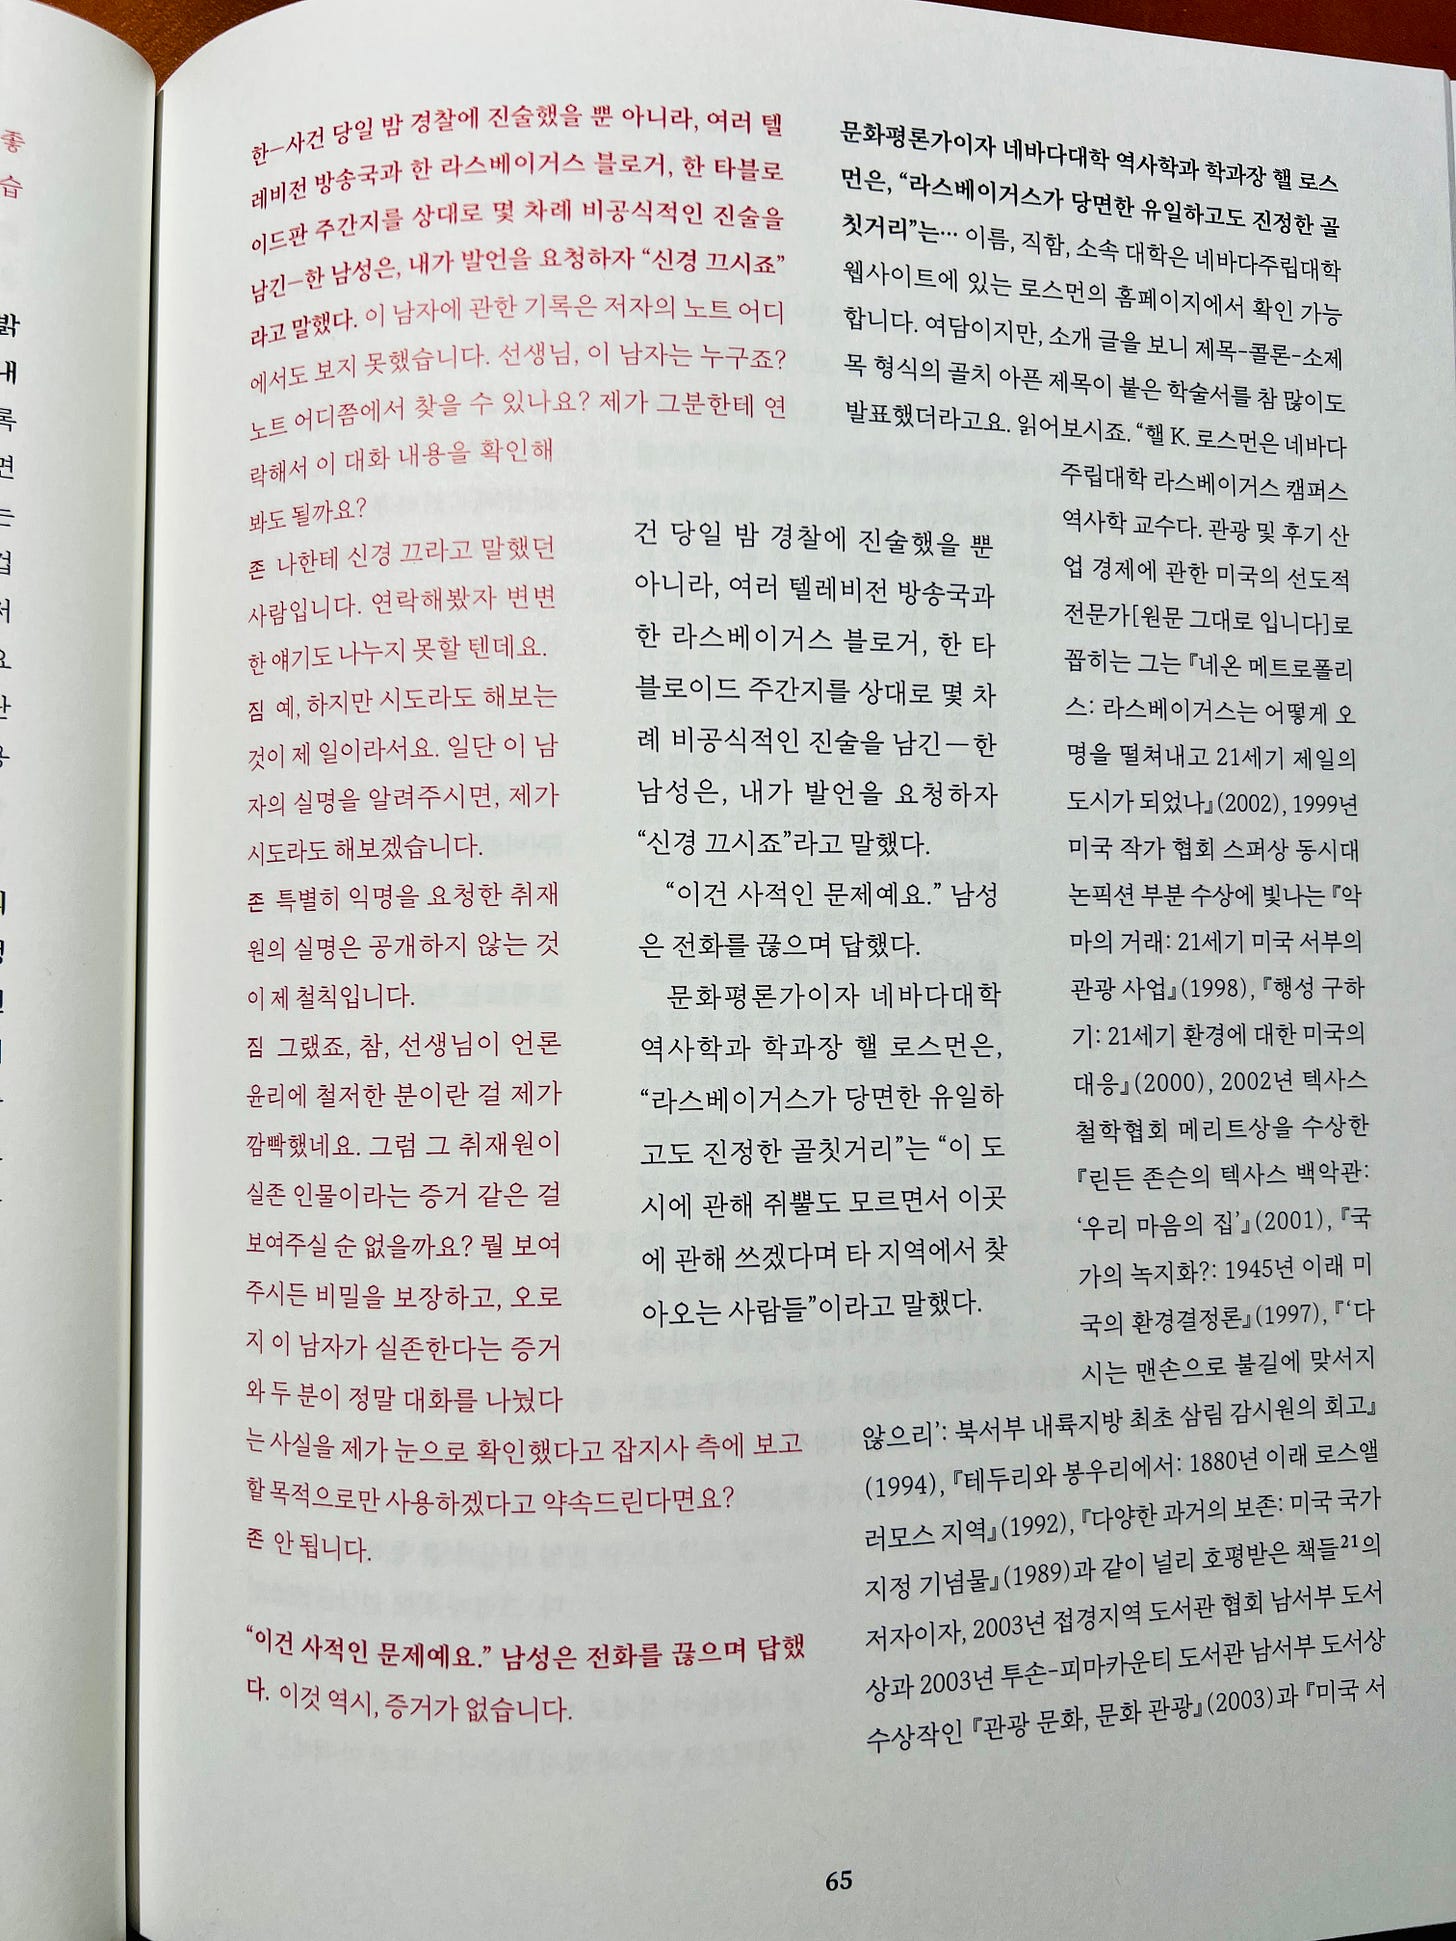 좋
습
밝
내
록
면
는
겁
저
요
한–사건 당일 밤 경찰에 진술했을 뿐 아니라, 여러 텔
레비전 방송국과 한 라스베이거스 블로거, 한 타블로
이드판 주간지를 상대로 몇 차례 비공식적인 진술을
남긴–한 남성은, 내가 발언을 요청하자 “신경 끄시죠”
라고 말했다. 이 남자에 관한 기록은 저자의 노트 어디
에서도 보지 못했습니다. 선생님, 이 남자는 누구죠?
노트 어디쯤에서 찾을 수 있나요? 제가 그분한테 연
락해서 이 대화 내용을 확인해
봐도 될까요?
존 나한테 신경 끄라고 말했던
사람입니다. 연락해봤자 변변
한 얘기도 나누지 못할 텐데요.
짐 예, 하지만 시도라도 해보는
것이 제 일이라서요. 일단 이 남
자의 실명을 알려주시면, 제가
시도라도 해보겠습니다.
존 특별히 익명을 요청한 취재
원의 실명은 공개하지 않는 것
이 제 철칙입니다.
짐 그랬죠, 참, 선생님이 언론
윤리에 철저한 분이란 걸 제가
깜빡했네요. 그럼 그 취재원이
실존 인물이라는 증거 같은 걸
보여주실 순 없을까요? 뭘 보여
주시든 비밀을 보장하고, 오로
지 이 남자가 실존한다는 증거
와 두 분이 정말 대화를 나눴다
는 사실을 제가 눈으로 확인했다고 잡지사 측에 보고
할 목적으로만 사용하겠다고 약속드린다면요?
존 안 됩니다.
“이건 사적인 문제예요.” 남성은 전화를 끊으며 답했
다. 이것 역시, 증거가 없습니다.
건 당일 밤 경찰에 진술했을 뿐
아니라, 여러 텔레비전 방송국과
한 라스베이거스 블로거, 한 타
블로이드 주간지를 상대로 몇 차
례 비공식적인 진술을 남긴—한
남성은, 내가 발언을 요청하자
“신경 끄시죠”라고 말했다.
“이건 사적인 문제예요.” 남성
은 전화를 끊으며 답했다.
문화평론가이자 네바다대학
역사학과 학과장 핼 로스먼은,
“라스베이거스가 당면한 유일하
고도 진정한 골칫거리”는 “이 도
시에 관해 쥐뿔도 모르면서 이곳
에 관해 쓰겠다며 타 지역에서 찾
아오는 사람들”이라고 말했다.
문화평론가이자 네바다대학 역사학과 학과장 핼 로스
먼은, “라스베이거스가 당면한 유일하고도 진정한 골
칫거리”는… 이름, 직함, 소속 대학은 네바다주립대학
웹사이트에 있는 로스먼의 홈페이지에서 확인 가능
합니다. 여담이지만, 소개 글을 보니 제목-콜론-소제
목 형식의 골치 아픈 제목이 붙은 학술서를 참 많이도
발표했더라고요. 읽어보시죠. “핼 K. 로스먼은 네바다
주립대학 라스베이거스 캠퍼스
역사학 교수다. 관광 및 후기 산
업 경제에 관한 미국의 선도적
전문가[원문 그대로 입니다]로
꼽히는 그는 『네온 메트로폴리
스: 라스베이거스는 어떻게 오
명을 떨쳐내고 21세기 제일의
도시가 되었나』(2002), 1999년
미국 작가 협회 스퍼상 동시대
논픽션 부분 수상에 빛나는 『악
마의 거래: 21세기 미국 서부의
관광 사업』(1998), 『행성 구하
기: 21세기 환경에 대한 미국의
대응』(2000), 2002년 텍사스
철학협회 메리트상을 수상한
『린든 존슨의 텍사스 백악관:
‘우리 마음의 집’』(2001), 『국
가의 녹지화?: 1945년 이래 미
국의 환경결정론』(1997), 『‘다
시는 맨손으로 불길에 맞서지
않으리’: 북서부 내륙지방 최초 삼림 감시원의 회고』
(1994), 『테두리와 봉우리에서: 1880년 이래 로스앨
러모스 지역』(1992), 『다양한 과거의 보존: 미국 국가
지정 기념물』(1989)과 같이 널리 호평받은 책들21의
저자이자, 2003년 접경지역 도서관 협회 남서부 도서
상과 2003년 투손-피마카운티 도서관 남서부 도서상
수상작인 『관광 문화, 문화 관광』(2003)과 『미국 서
65